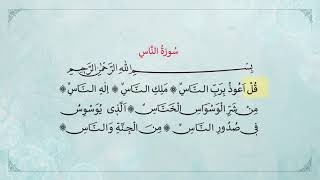 سُورَةُ النَّاسِ
بِسْمِ اللهِ الرَّحْمٰنِ الرَّحِيْمِ
قُلْ اَعُوْذُ بِرَبِّ النَّاسِ ۞ مَلِكِ النَّاسِ ۞ اِلٰهِ النَّاسِ ۞
مِنْ شَرِّ الْوَسْوَاسِ الْخَنَّاسِ ۞ الَّذِىْ يُوَسْوِسُ
فِىْ صُدُوْرِ النَّاسِ ۞ مِنَ الْجِنَّةِ وَالنَّاسِ ۞